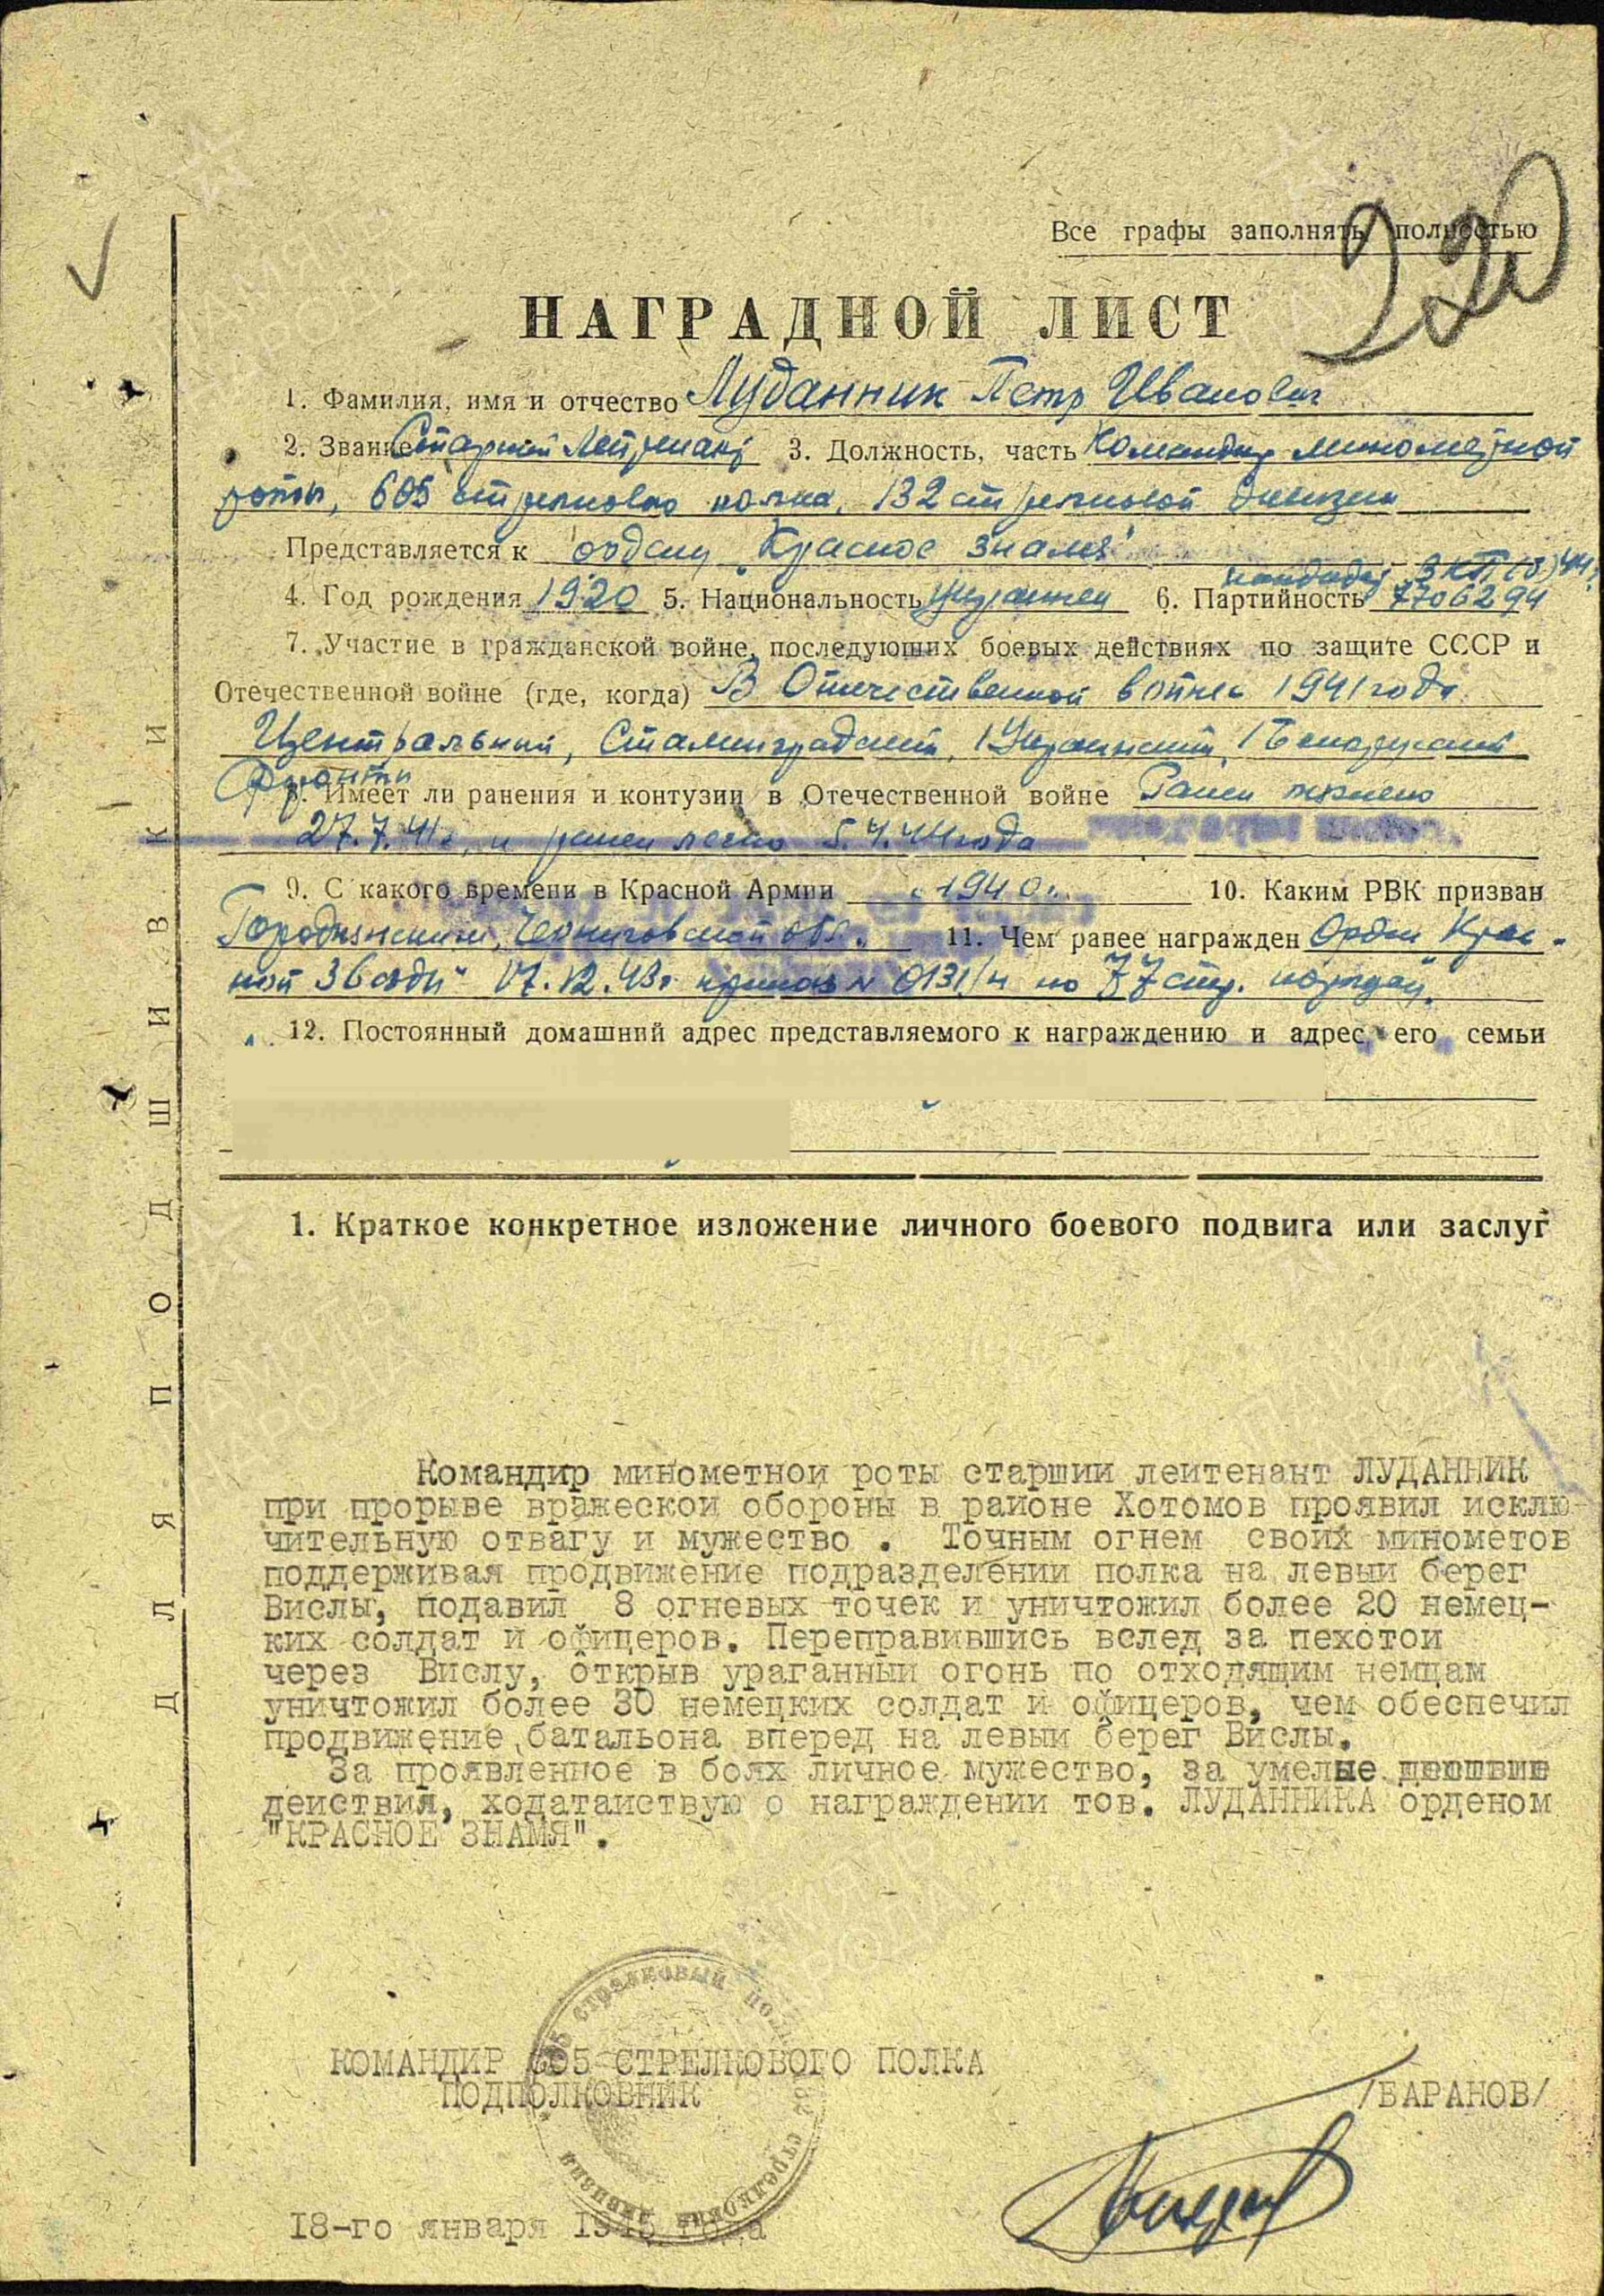 220
Все графы заполнять полностью
НАГРАДНОЙ ЛИСТ
1. Фамилия, имя и отчество Луданник Петр Иванович
2. Звание Старший Лейтенант 3. Должность, часть Командир минометной
роты, 605 стрелкового полка, 132 стрелковой дивизии
Представляется к ордену "Красное знамя"
кандидат ВКП(б) 44г.
4. Год рождения 1920 5. Национальность украинец 6. Партийность 7706294
7. Участие в гражданской войне, последующих боевых действиях по защите СССР и
Отечественной войне (где, когда) В Отечественной войне с 1941 года
Центральный, Сталинградский, 1 Украинский, 1 Белорусский
фронты
8. Имеет ли ранения и контузии в Отечественной войне Ранен тяжело
27.7.41г. и ранен легко 5.4.44 года
9. С какого времени в Красной Армии с 1940г. 10. Каким РВК призван
Городнянским, Черниговской обл. 11. Чем ранее награжден Орден Крас-
ной Звезды" 17.12.43г приказ № 0131/н по 77 стр. корпусу
12. Постоянный домашний адрес представляемого к награждению и адрес его семьи
1. Краткое конкретное изложение личного боевого подвига или заслуг
Командир минометнои роты старшии леитенант ЛУДАННИК
при прорыве вражескои обороны в районе Хотомов проявил исклю-
чительную отвагу и мужество . Точным огнем своих минометов
поддерживая продвижение подразделении полка на левыи берег
Вислы, подавил 8 огневых точек и уничтожил более 20 немец-
ких солдат и офицеров. Переправившись вслед за пехотои
через Вислу, открыв ураганныи огонь по отходящим немцам
уничтожил более 30 немецких солдат и офицеров, чем обеспечил
продвижение батальона вперед на левыи берег Вислы.
За проявленное в боях личное мужество, за умелые
деиствия, ходатаиствую о награждении тов. ЛУДАННИКА орденом
"КРАСНОЕ ЗНАМЯ".
КОМАНДИР 605 СТРЕЛКОВОГО ПОЛКА
ПОДПОЛКОВНИК /БАРАНОВ/
18-го января 1945 года
605 стрелковый полк 132 стрелковая дивизия
ДЛЯ ПОДШИВКИ
ПАМЯТЬ НАРОДА